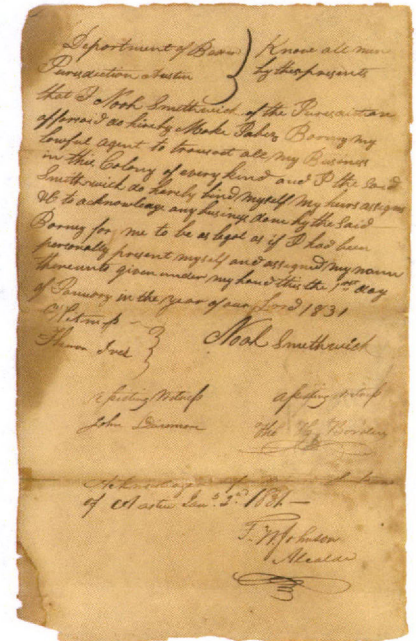 Department of Bexar } Know all men
Jurisdiction Austin } by these presents
that I Noah Smithwick of the Jurisdiction
aforesaid do hereby Make Gabes Borny my
lawful agent to transact all my Business
in this Colony of every kind and I the Said
Smithwick do hereby bind myself my heirs assigns
&c to acknowledge any business done by the Said
Borny for me to be as legal as if I had been
personally present myself and assigned my name
thereunto given under my hand this the 1st day
of January in the year of our Lord 1831
Noah Smithwick
John
Tho
of Austin Jany 3d 1831
Johnson
Alcalde